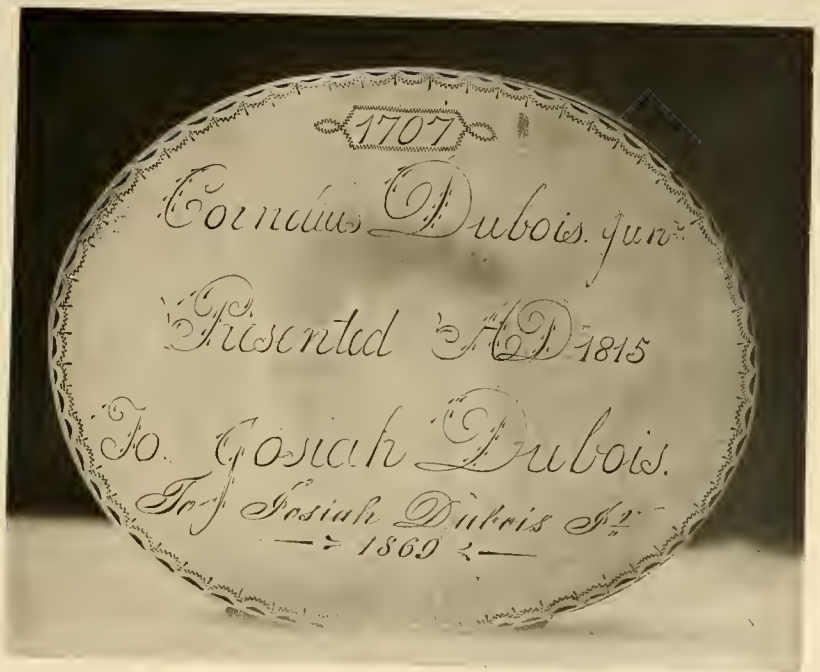 1707
Cornelius Dubois. Junr
Presented AD 1815
To. Josiah Dubois.
To Josiah Dubois Jr
1869